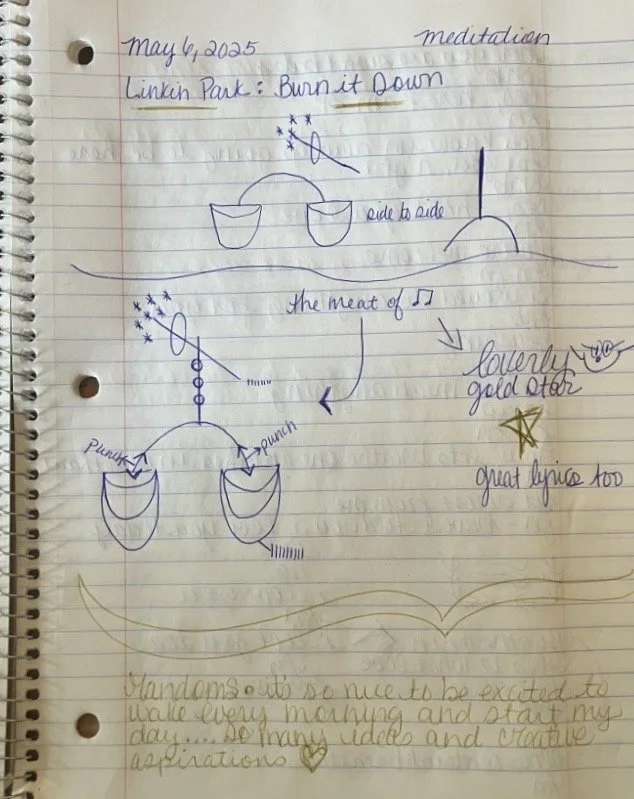 May 6, 2025
meditation
Linkin Park: Burn it Down
side to side
the meat of ♫
loverly
gold star
Punch
punch
great lyrics too
Randoms • it's so nice to be excited to
wake every morning and start my
day.... so many ideas and creative
aspirations ♡